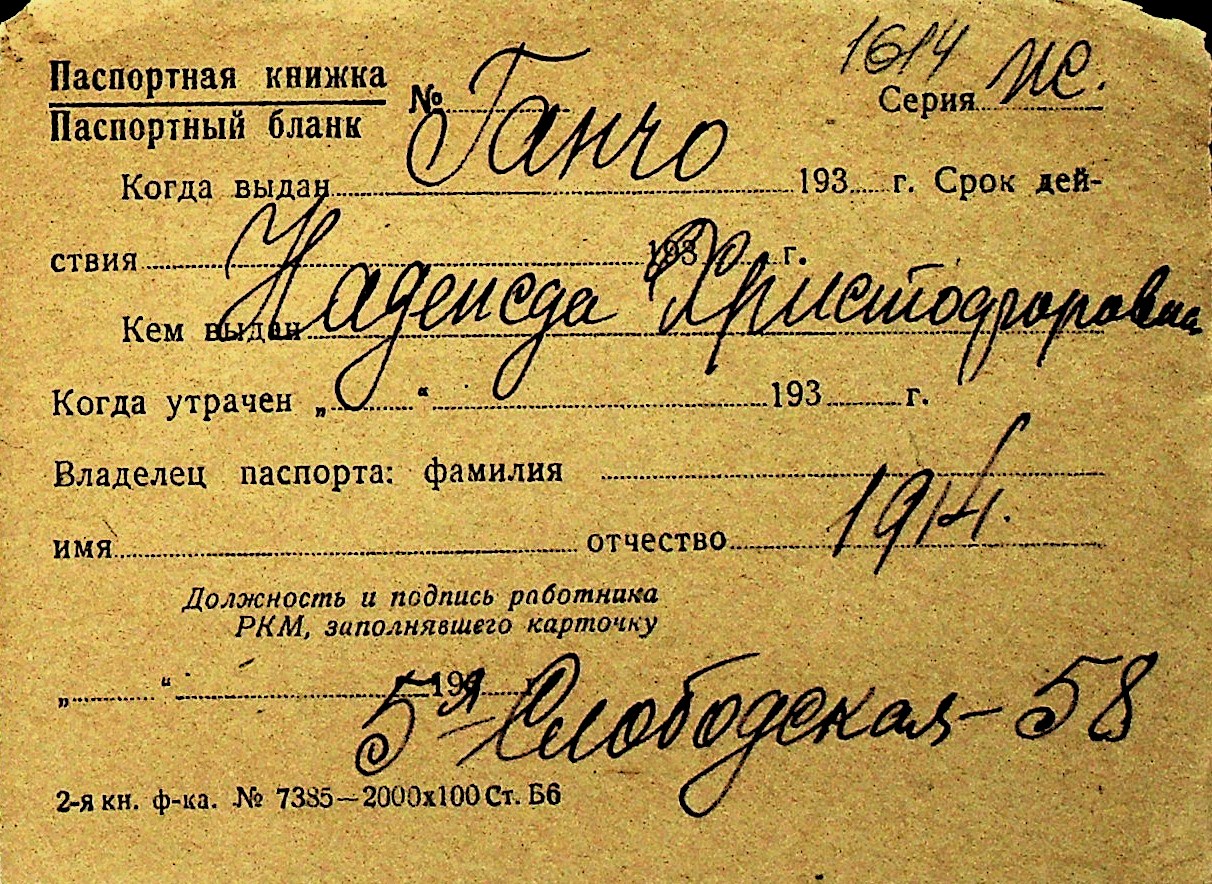 1614 ж.
Паспортная книжка
Паспортный бланк
№ Серия
Ганчо
Когда выдан 193 г. Срок дей-
ствия 193 г.
Надежда Христофоровна
Кем выдан
Когда утрачен „ “ 193 г.
Владелец паспорта: фамилия
1914.
имя отчество
Должность и подпись работника
РКМ, заполнявшего карточку
„ “ 193 г.
5я-Слободская-58
2-я кн. ф-ка. № 7385—2000х100 Ст. Б6